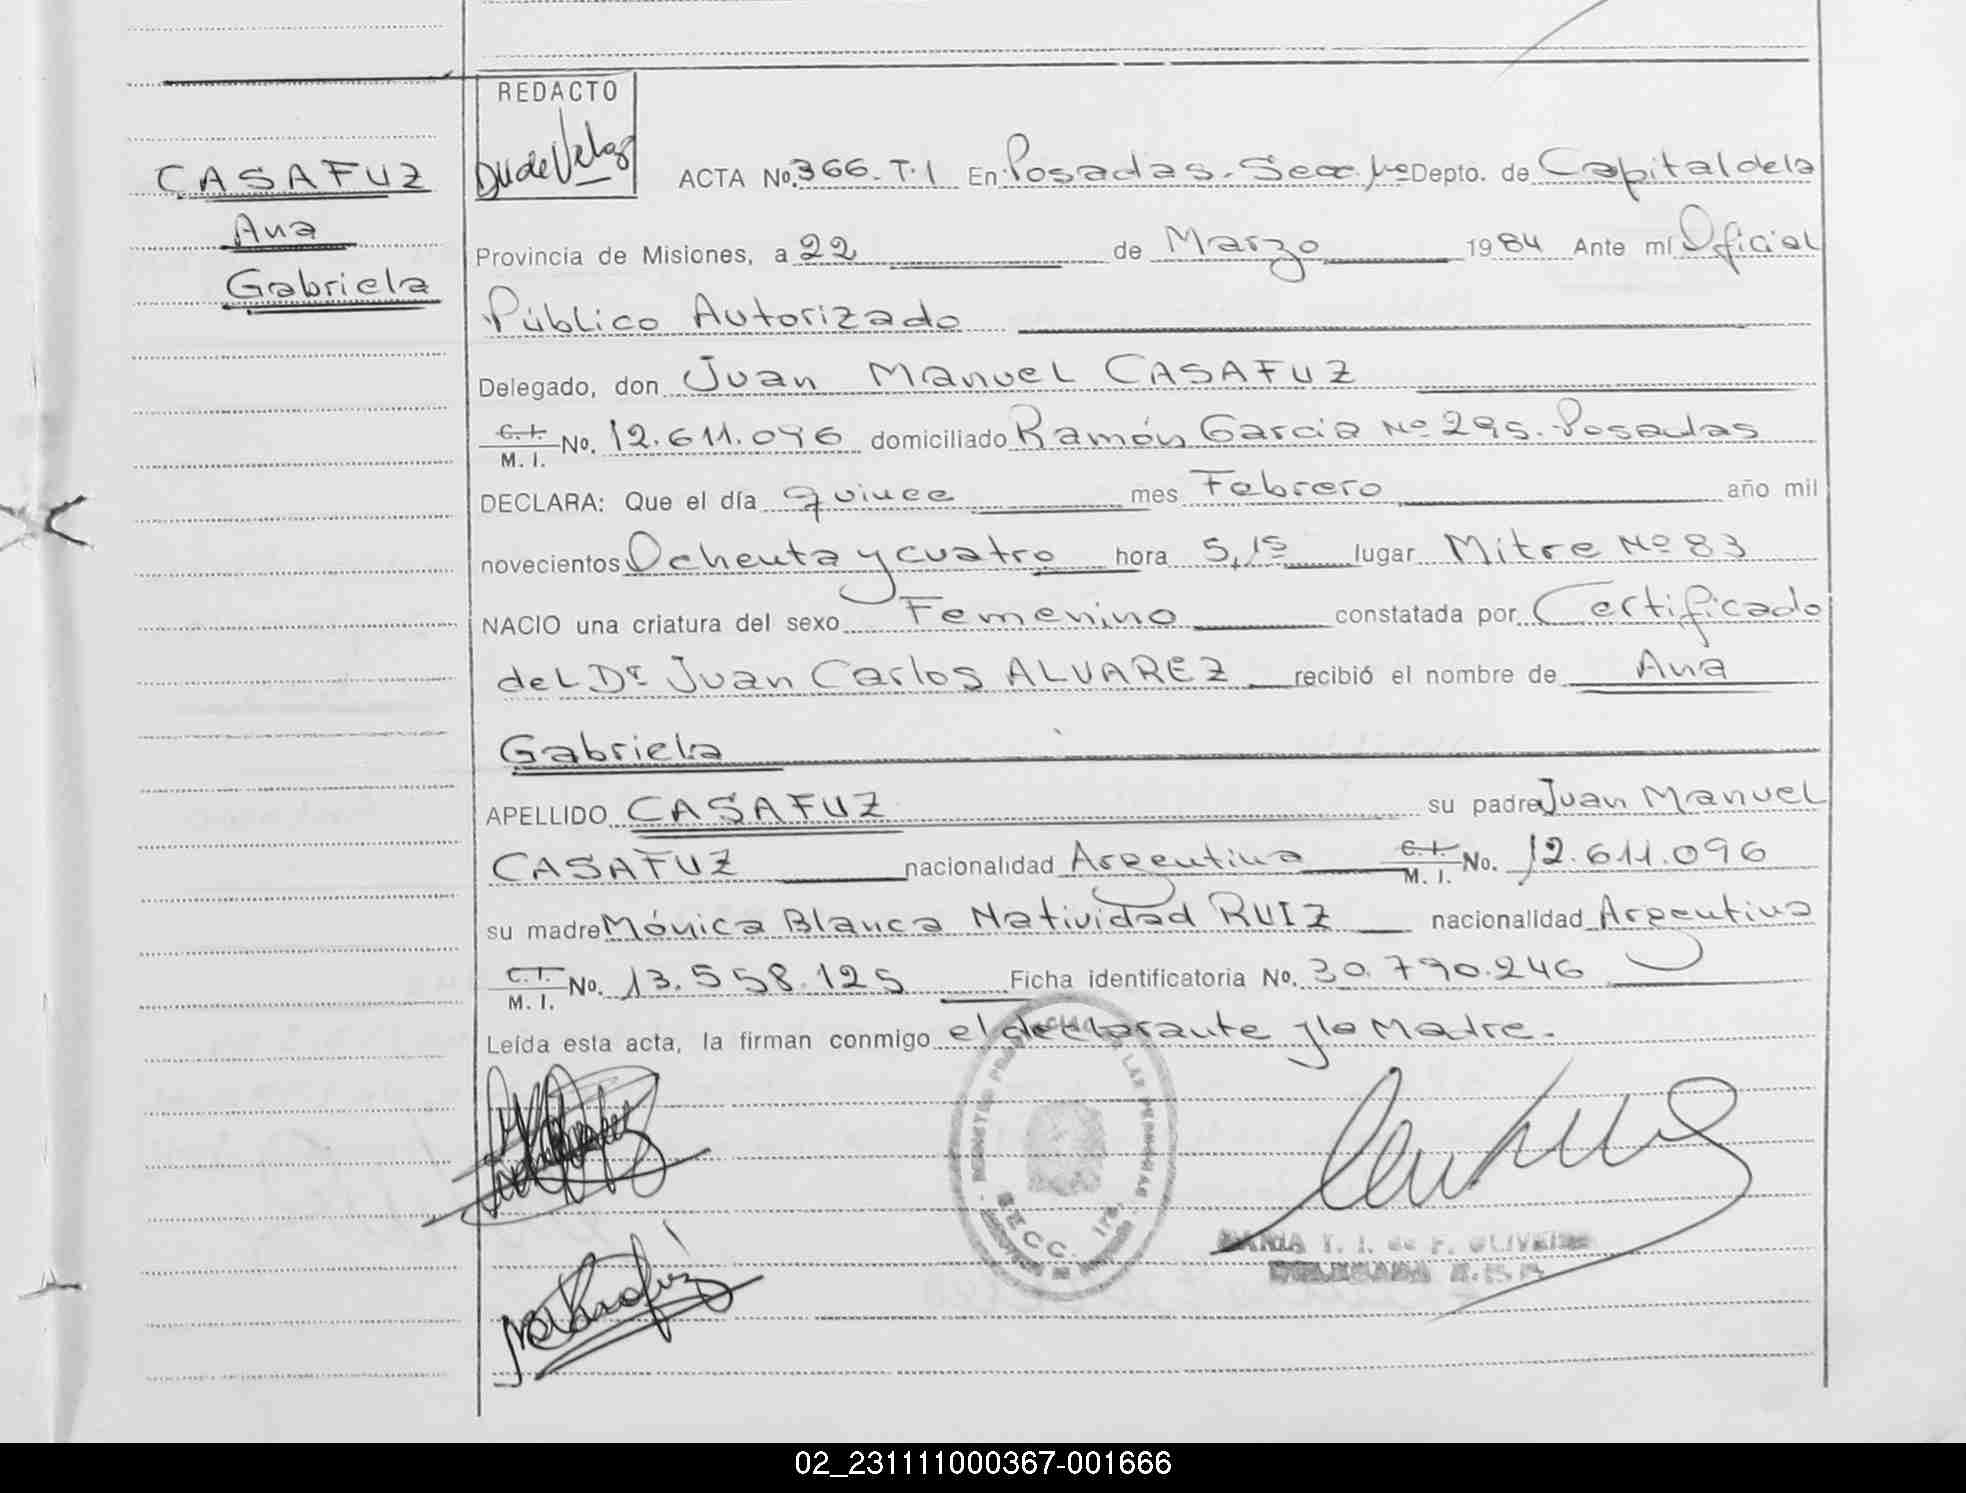 REDACTO
CASAFUZ
Ana
Gabriela
ACTA No. 366. T. 1 En Posadas. Secc 1ª Depto. de Capital de la
Provincia de Misiones, a 22 de Marzo 1984 Ante mí Oficial
Público Autorizado
Delegado, don Juan Manuel CASAFUZ
C.I. M. I. No. 12.611.096 domiciliado Ramón Garcia Nº 295. Posadas
DECLARA: Que el día quince mes Febrero año mil
novecientos Ochenta y cuatro hora 5,15 lugar Mitre Nº 83
NACIO una criatura del sexo Femenino constatada por Certificado
del Dr Juan Carlos ALVAREZ recibió el nombre de Ana
Gabriela
APELLIDO CASAFUZ su padre Juan Manuel
CASAFUZ nacionalidad Argentina C.I. M. I. No. 12.611.096
su madre Mónica Blanca Natividad RUIZ nacionalidad Argentina
C.I. M. I. No. 13.558.125 Ficha identificatoria No. 30.790.246
Leída esta acta, la firman conmigo el declarante y la Madre.
MARIA T. I. de F. OLIVEIRA
DELEGADA
02_231111000367-001666